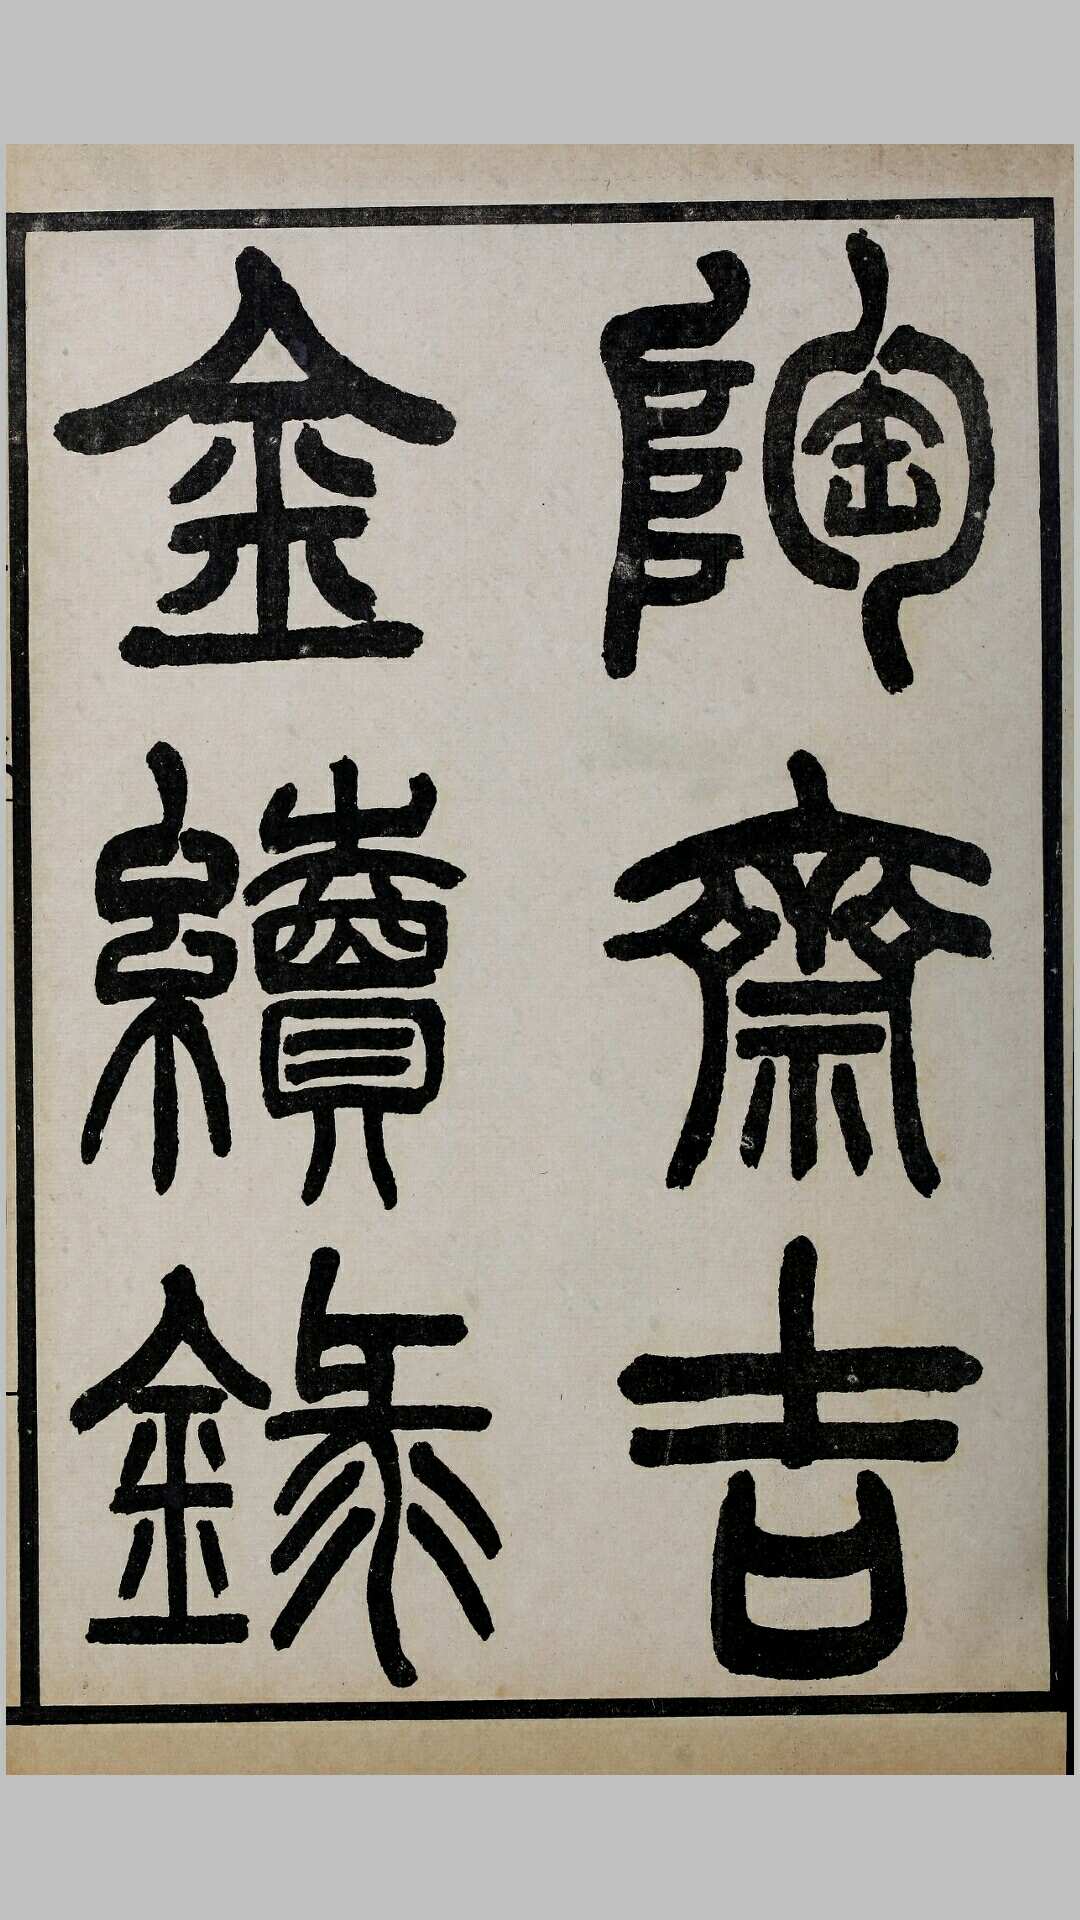 陶齋吉
金續錄